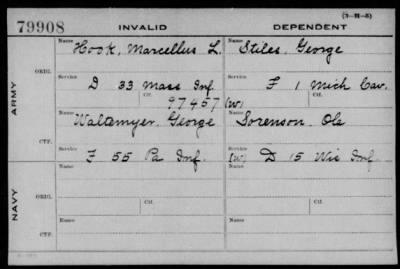 79908 INVALID DEPENDENT (3-21-5)
Name Name
Hook, Marcellus L. Stiles, George
ORIG. Service Service
D 33 Mass Inf. F 1 Mich Cav.
ARMY Ctf. Ctf.
97457 (W)
Name Name
Waltemyer, George Sorenson, Ole
CTF. Service Service
F 55 Pa Inf. (W) D 15 Wis Inf.
Name Name
NAVY
ORIG.
Ctf. Ctf.
Name Name
CTF.